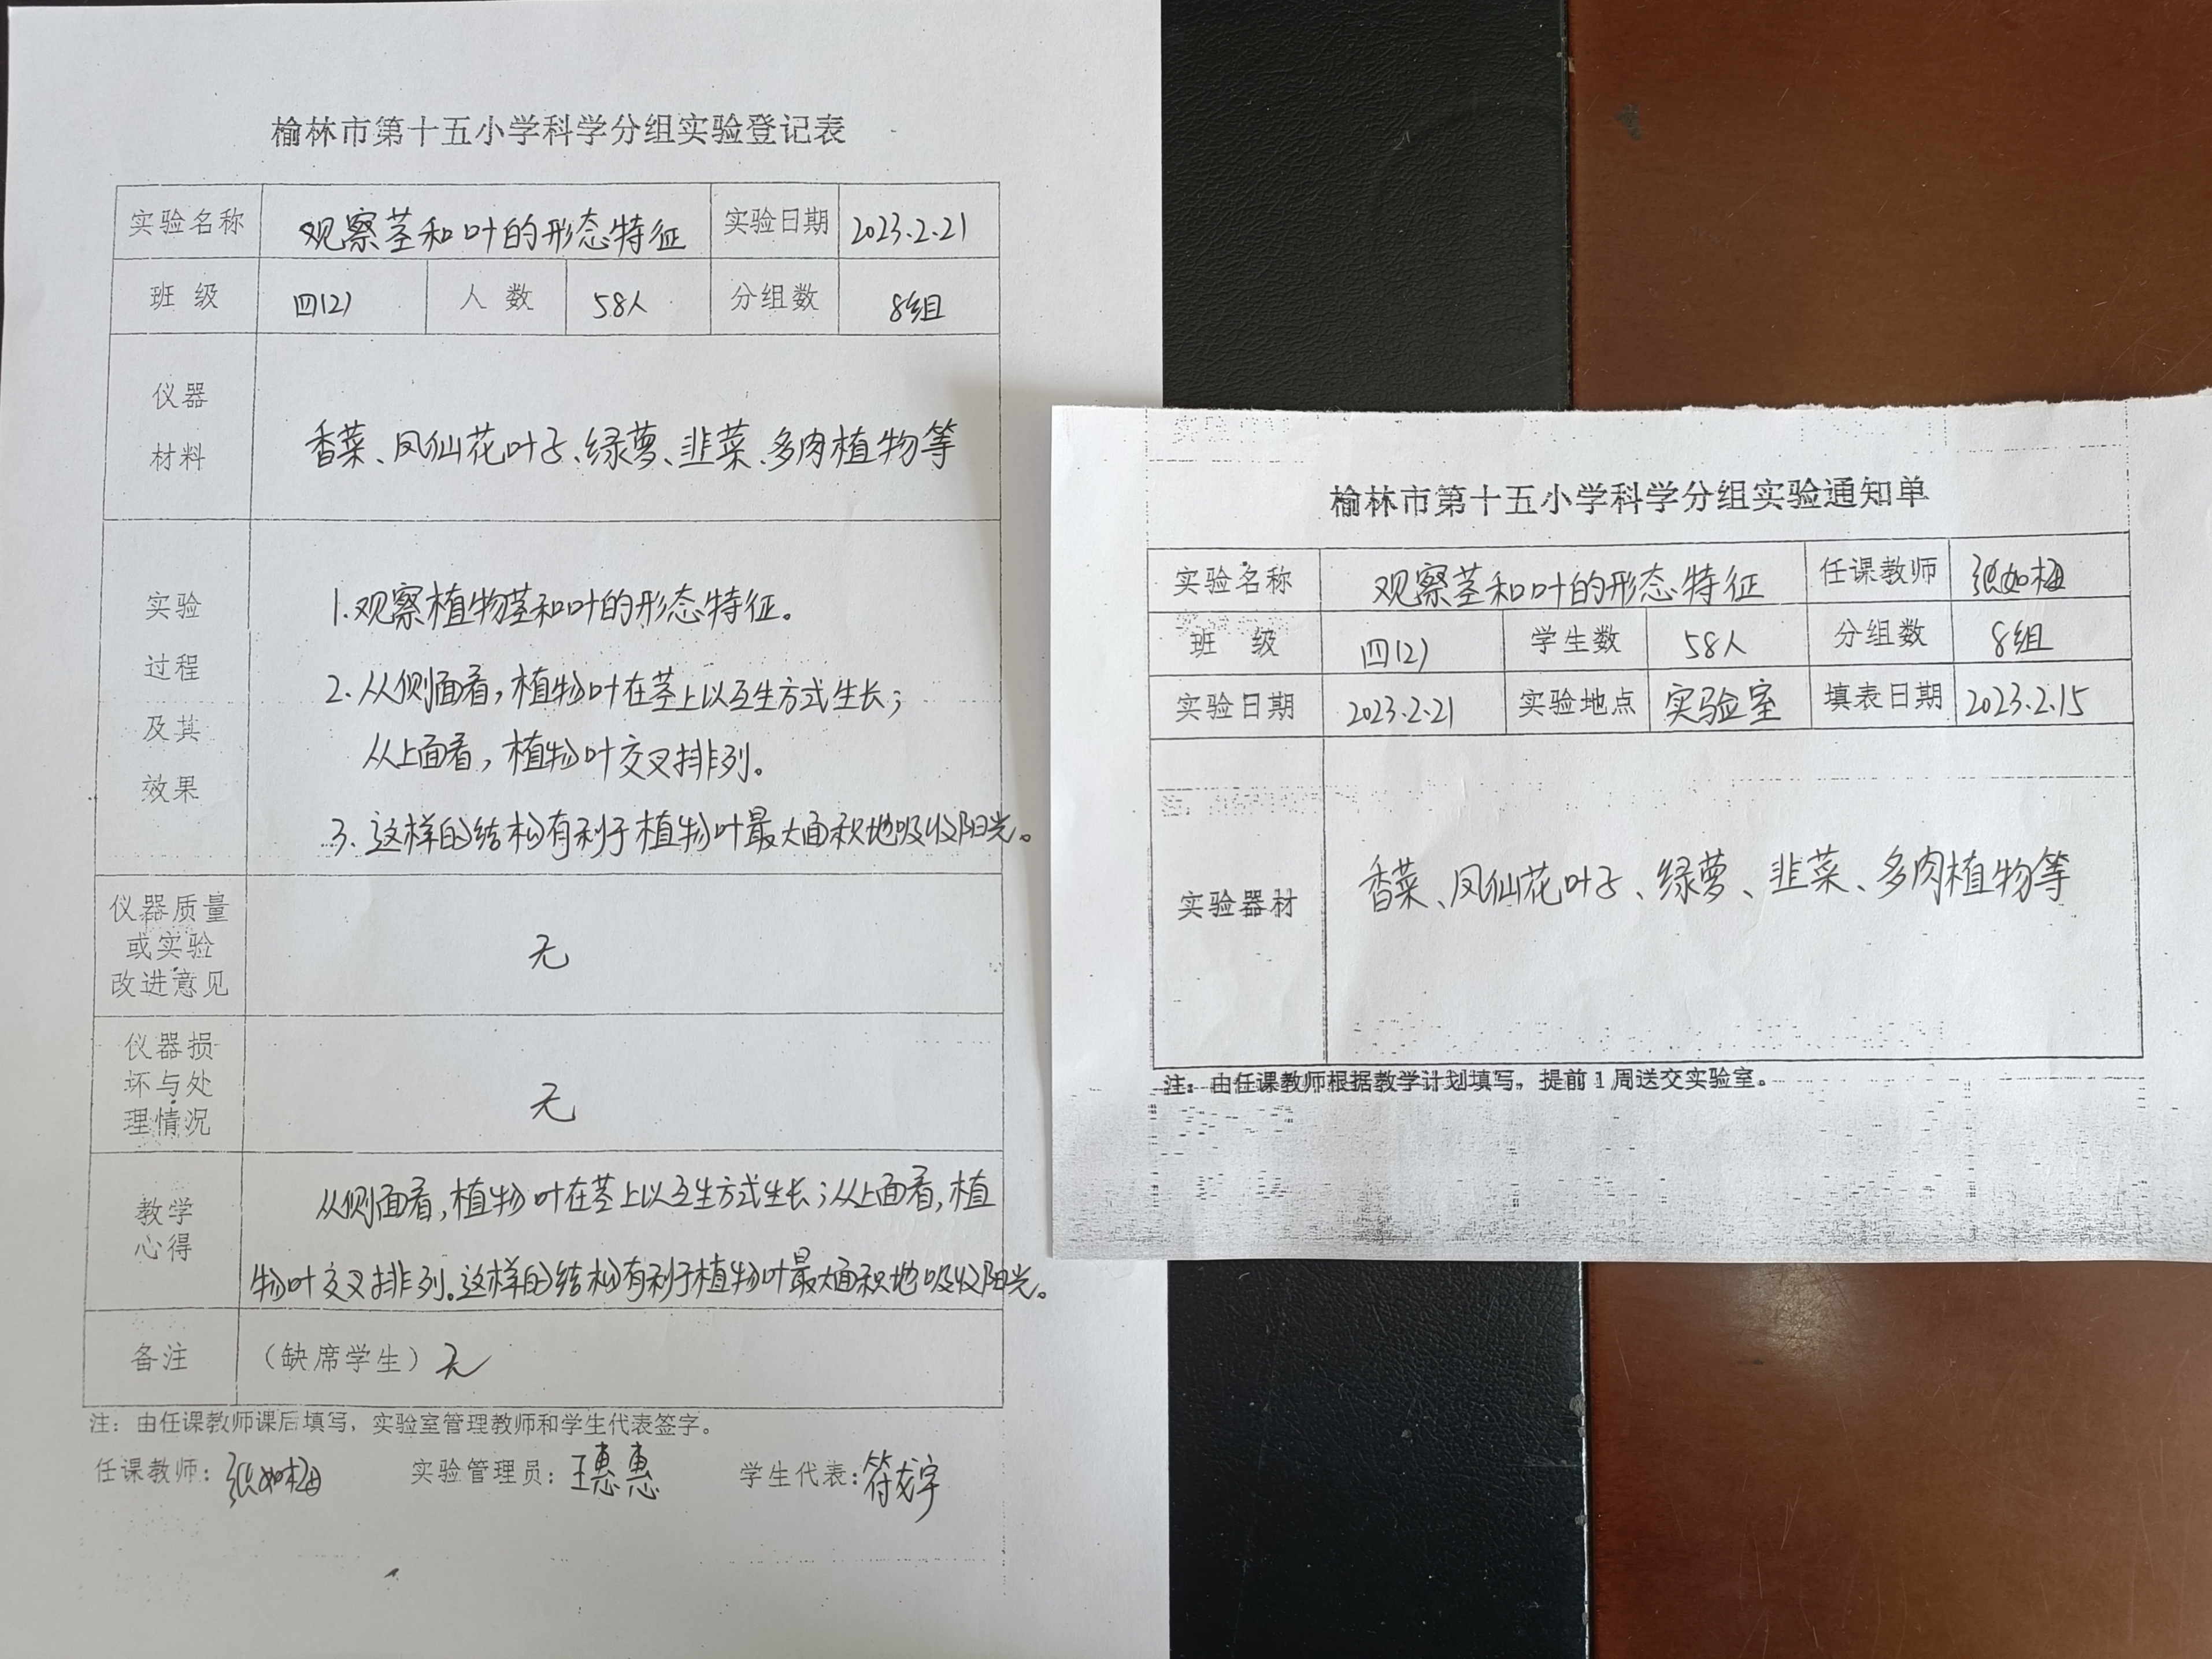 榆林市第十五小学科学分组实验登记表
实验名称 观察茎和叶的形态特征 实验日期 2023.2.21
班级 四(2) 人数 58人 分组数 8组
仪器
材料
香菜、凤仙花叶子、绿萝、韭菜、多肉植物等
实验
过程
及其
效果
1.观察植物茎和叶的形态特征。
2.从侧面看，植物叶在茎上以互生方式生长；
从上面看，植物叶交叉排列。
3.这样的结构有利于植物叶最大面积地吸收阳光。
仪器质量
或实验
改进意见
无
仪器损
坏与处
理情况
无
教学
心得
从侧面看，植物叶在茎上以互生方式生长；从上面看，植
物叶交叉排列。这样的结构有利于植物叶最大面积地吸收阳光。
备注 （缺席学生）无
注：由任课教师课后填写，实验室管理教师和学生代表签字。
任课教师：张如梅 实验管理员：王惠惠 学生代表：符宇
榆林市第十五小学科学分组实验通知单
实验名称 观察茎和叶的形态特征 任课教师 张如梅
班级 四(2) 学生数 58人 分组数 8组
实验日期 2023.2.21 实验地点 实验室 填表日期 2023.2.15
实验器材 香菜、凤仙花叶子、绿萝、韭菜、多肉植物等
注：由任课教师根据教学计划填写，提前1周送交实验室。